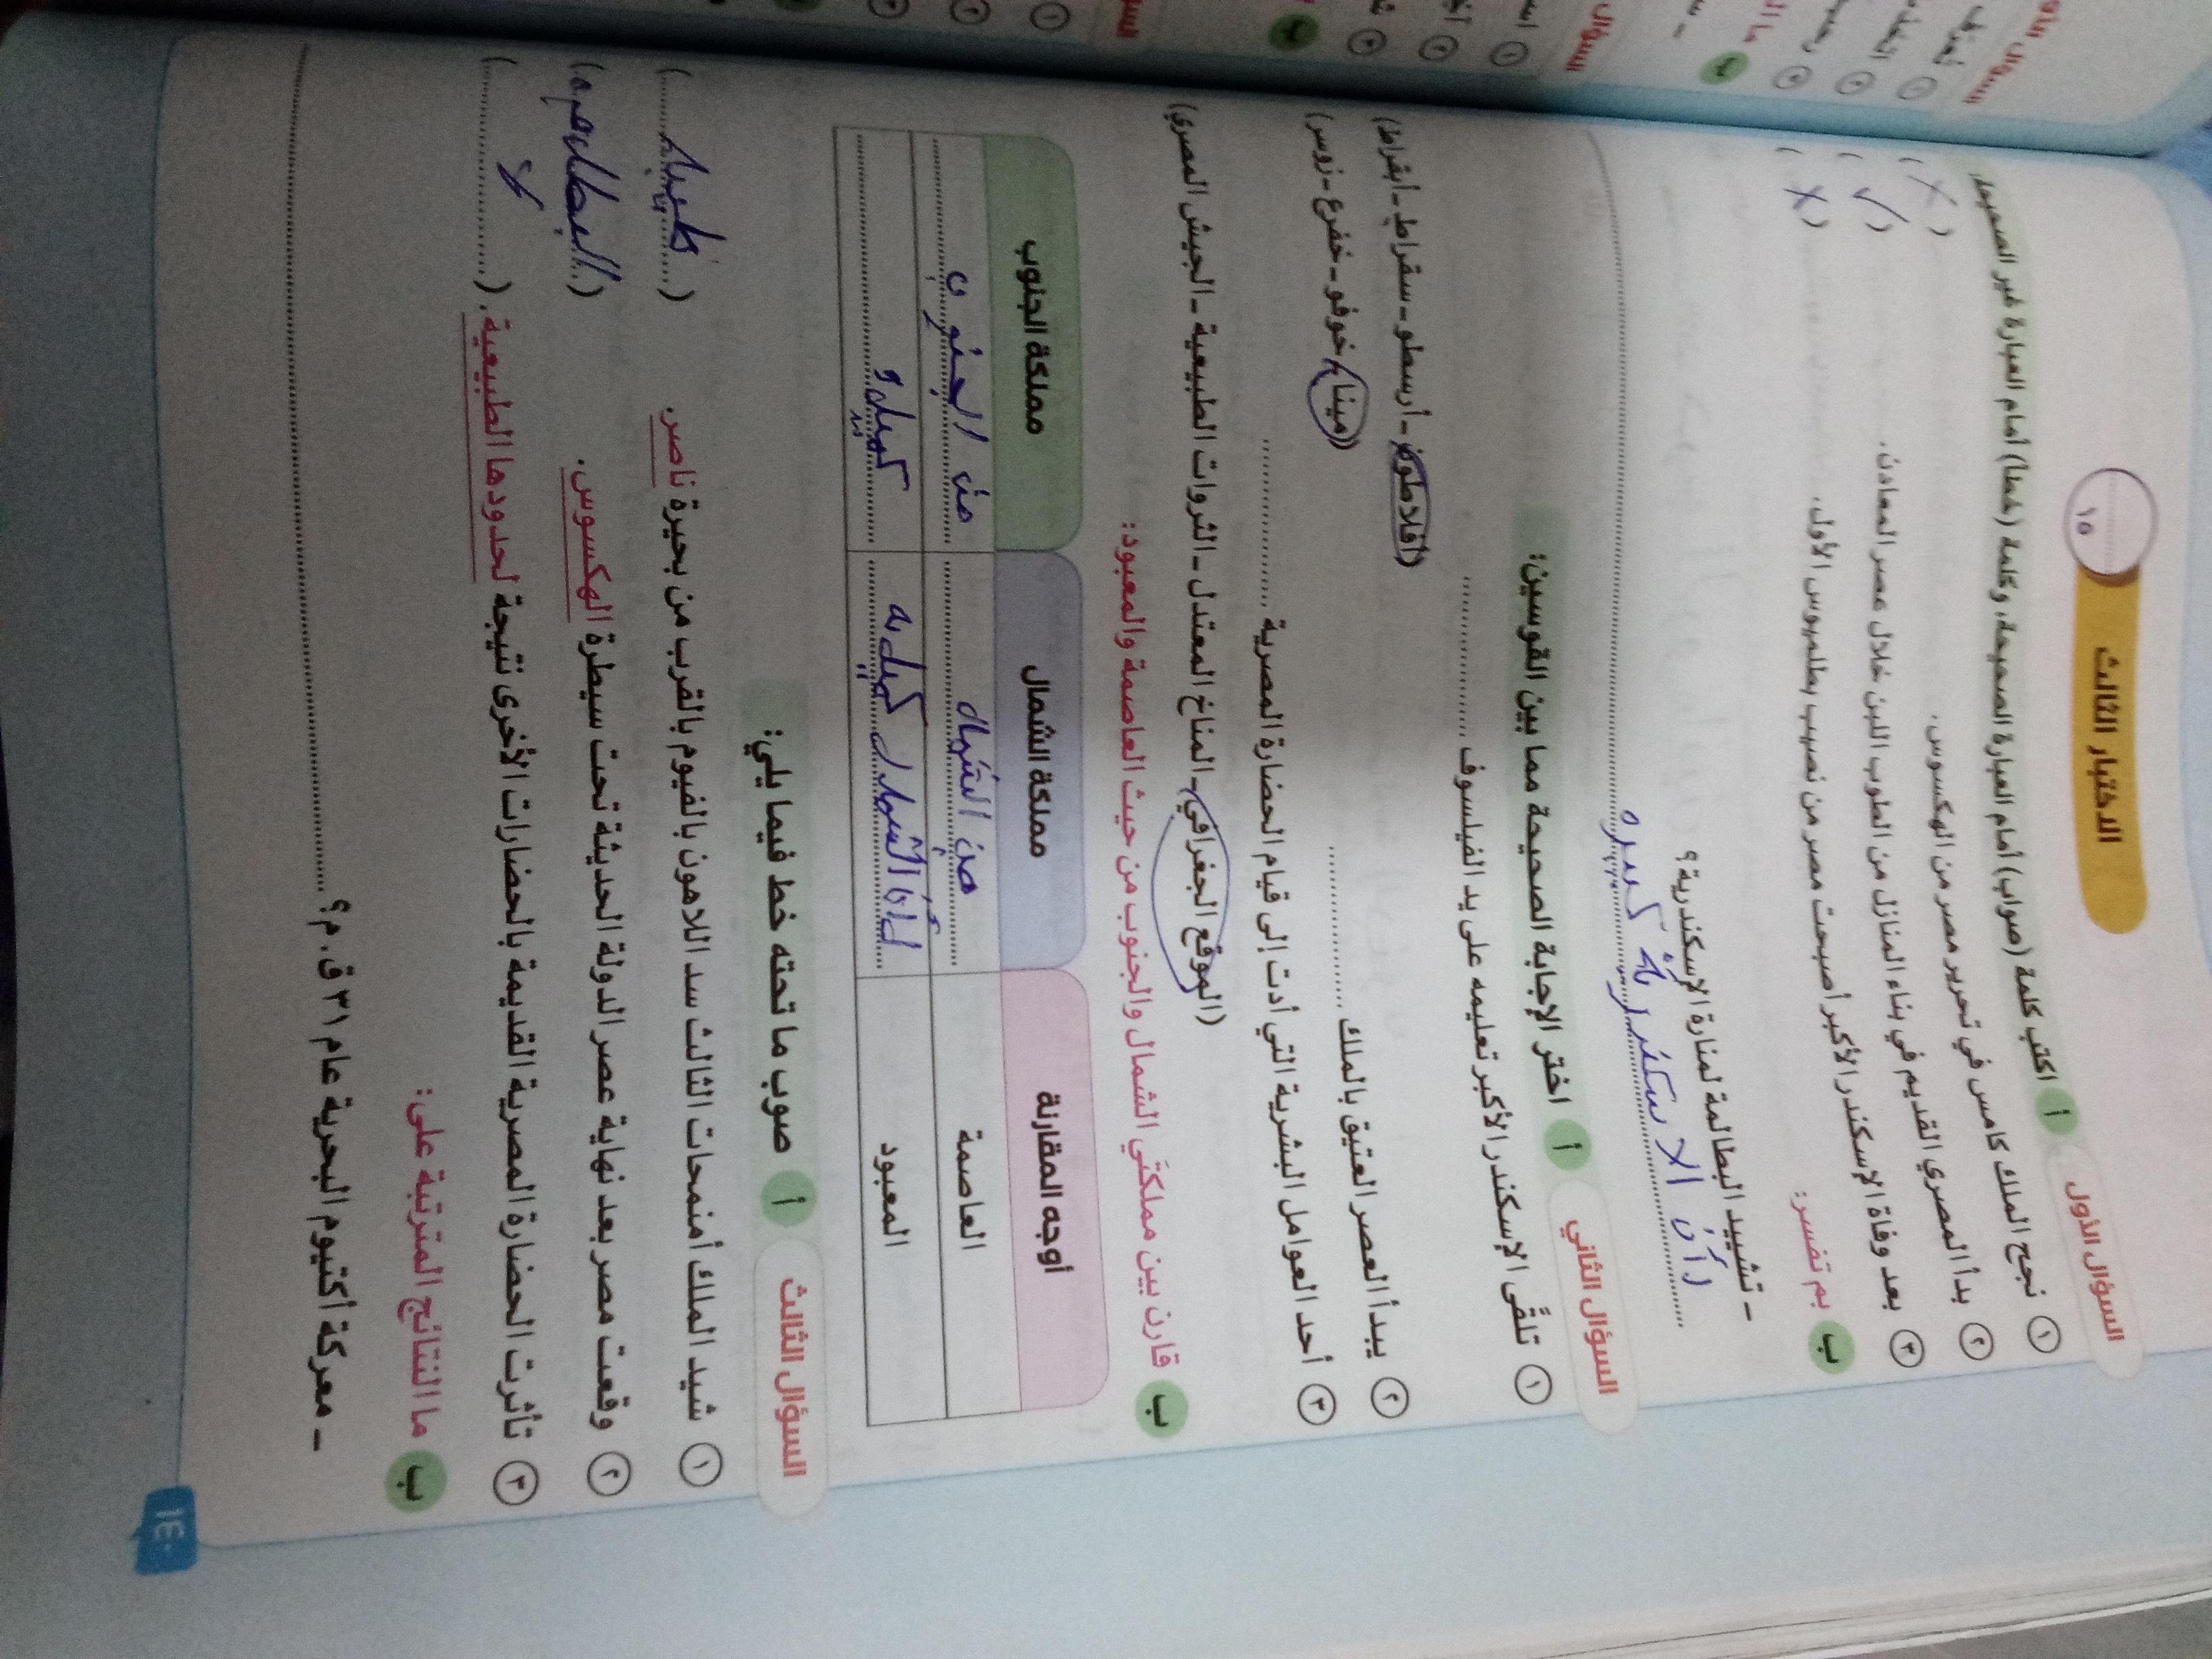 الاختبار الثالث
١٥
السؤال الأول
أ اكتب كلمة (صواب) أمام العبارة الصحيحة، وكلمة (خطأ) أمام العبارة غير الصحيحة:
١ نجح الملك كامس في تحرير مصر من الهكسوس. (X)
٢ بدأ المصري القديم في بناء المنازل من الطوب اللبن خلال عصر المعادن. (✓)
٣ بعد وفاة الإسكندر الأكبر أصبحت مصر من نصيب بطلميوس الأول. (X)
ب بم تفسر:
- تشييد البطالمة لمنارة الإسكندرية؟
كبيره
السؤال الثاني
أ اختر الإجابة الصحيحة مما بين القوسين:
١ تلقَّى الإسكندر الأكبر تعليمه على يد الفيلسوف ............... (أفلاطون - أرسطو - سقراط - أبقراط)
٢ يبدأ العصر العتيق بالملك ............... (مينا - خوفو - خفرع - زوس)
٣ أحد العوامل البشرية التي أدت إلى قيام الحضارة المصرية ...............
(الموقع الجغرافي - المناخ المعتدل - الثروات الطبيعية - الجيش المصري)
ب قارن بين مملكتَي الشمال والجنوب من حيث العاصمة والمعبود:
أوجه المقارنة مملكة الشمال مملكة الجنوب
العاصمة من الشمال من الجنوب
المعبود
السؤال الثالث
أ صوب ما تحته خط فيما يلي:
١ شيد الملك أمنمحات الثالث سد اللاهون بالفيوم بالقرب من بحيرة ناصر. (طيبة)
٢ وقعت مصر بعد نهاية عصر الدولة الحديثة تحت سيطرة الهكسوس. (البطالمه)
٣ تأثرت الحضارة المصرية القديمة بالحضارات الأخرى نتيجة لحدودها الطبيعية. (...............)
ب ما النتائج المترتبة على:
- معركة أكتيوم البحرية عام ٣١ ق. م؟
١٤٠